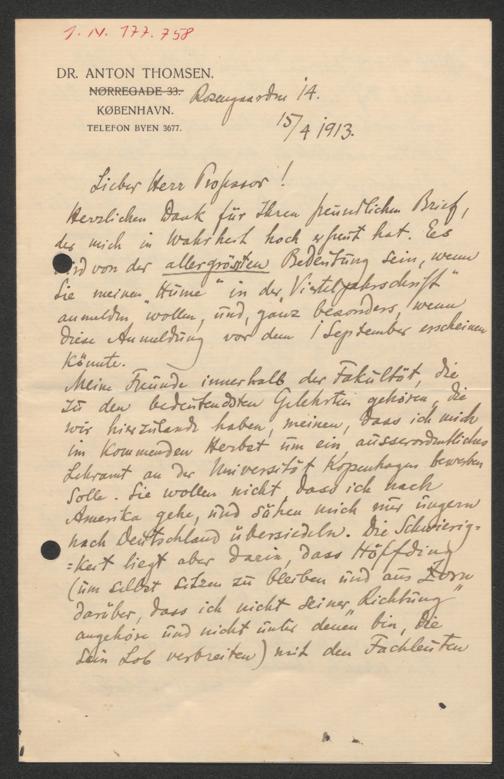 J. N. 177.758
DR. ANTON THOMSEN.
NØRREGADE 33. Rosengaarden 14.
KØBENHAVN.
TELEFON BYEN 3677.
15/4 1913.
Lieber Herr Professor!
Herzlichen Dank für Ihren freundlichen Brief,
der mich in Wahrheit hoch erfreut hat. Es
wird von der allergrössten Bedeutung sein, wenn
Sie meinen "Hume" in der "Vierteljahrschrift"
anmelden wollen, und, ganz besonders, wenn
diese Anmeldung vor dem 1 September erscheinen
könnte.
Meine Freunde innerhalb der Fakultät, die
zu den bedeutendsten Gelehrten gehören, die
wir hierzulande haben, meinen, dass ich mich
im kommenden Herbst um ein ausserordentliches
Lehramt an der Universität Kopenhagen bewerben
solle. Sie wollen nicht, dass ich nach
Amerika gehe, und sähen mich nur ungern
nach Deutschland übersiedeln. Die Schwierig=
=keit liegt aber darin, dass Höffding
(um selbst sitzen zu bleiben und aus Zorn
darüber, dass ich nicht seiner "Richtung"
angehöre und nicht unter denen bin, die
sein Lob verbreiten) mit den Fachleuten